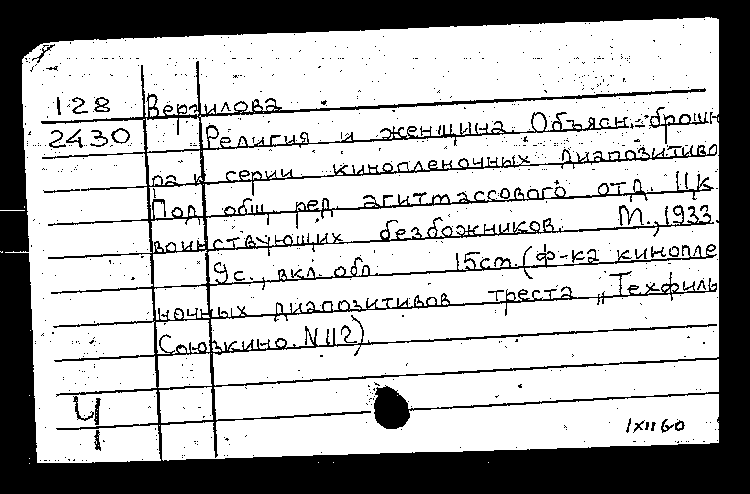 128 Верзилова
2430 Религия и женщина. Объясн.-брошю
ра к серии кинопленочных диапозитиво
Под общ. ред. агитмассового отд. ЦК
воинствующих безбожников. М., 1933.
9с., вкл. обл. 15см. (ф-ка кинопле
ночных диапозитивов треста „Техфиль
Союзкино. N112).
Ч
1XII60